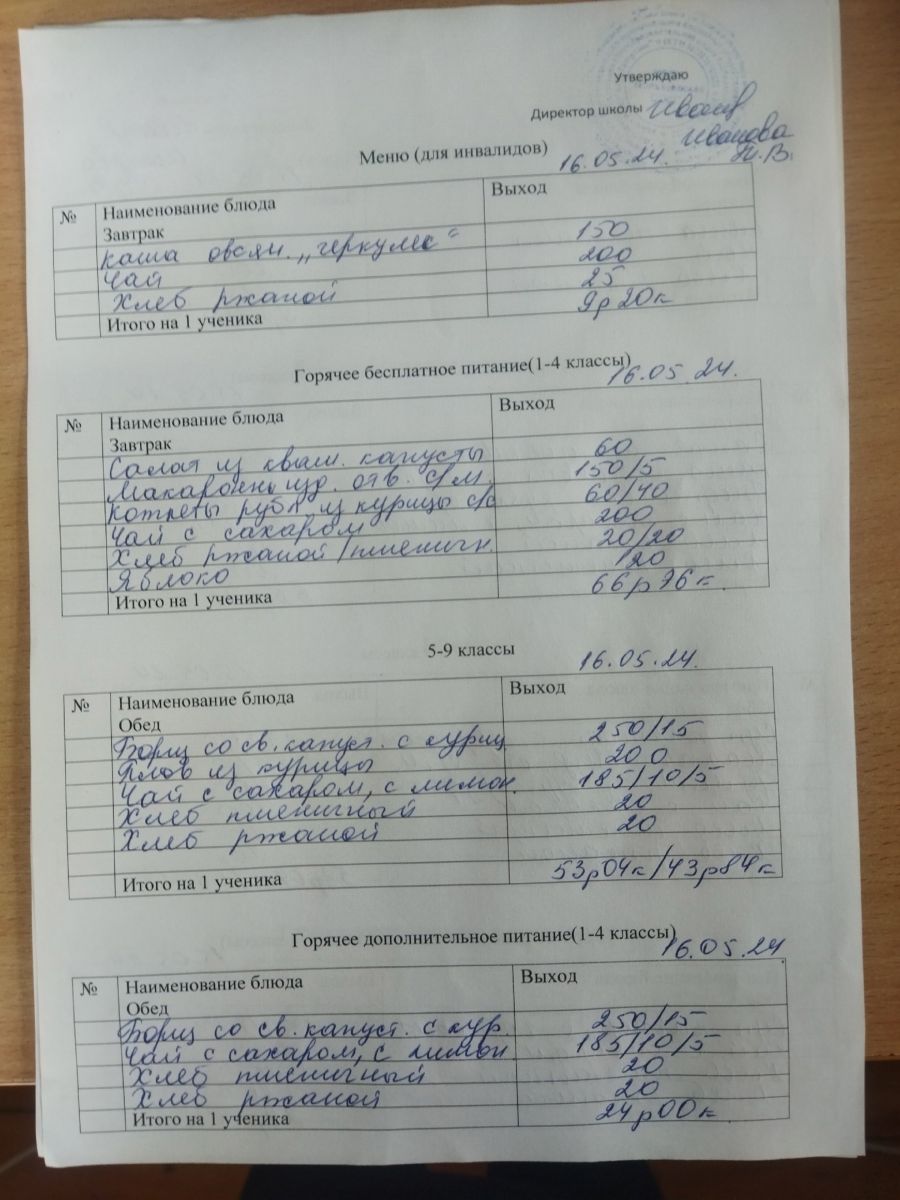 Утверждаю
Директор школы
Иванова
Меню (для инвалидов) 16.05.24.
№ Наименование блюда Выход
Завтрак
Каша овсян. „геркулес" 150
Чай 200
Хлеб ржаной 25
Итого на 1 ученика 9р20к
Горячее бесплатное питание(1-4 классы) 16.05.24.
№ Наименование блюда Выход
Завтрак
Салат из кваш. капусты 60
Макароны изд. отв. с/м. 150/5
Котлеты рубл. из курицы с/с 60/40
Чай с сахаром 200
Хлеб ржаной/пшеничн. 20/20
Яблоко 120
Итого на 1 ученика 66р76к
5-9 классы 16.05.24.
№ Наименование блюда Выход
Обед
Борщ со св. капуст. с куриц 250/15
Плов из курицы 200
Чай с сахаром, с лимон. 185/10/5
Хлеб пшеничный 20
Хлеб ржаной 20
Итого на 1 ученика 53р04к/43р84к
Горячее дополнительное питание(1-4 классы) 16.05.24
№ Наименование блюда Выход
Обед
Борщ со св. капуст. с кур. 250/15
Чай с сахаром, с лимон 185/10/5
Хлеб пшеничный 20
Хлеб ржаной 20
Итого на 1 ученика 24р00к